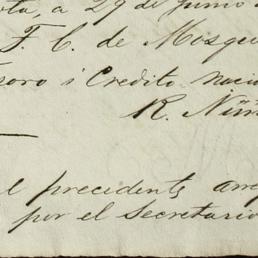 ota, a 29 de junio
T. C. de Mosqu
soro i Credito naci
R. Núñ
el precedente arr
por el secretario